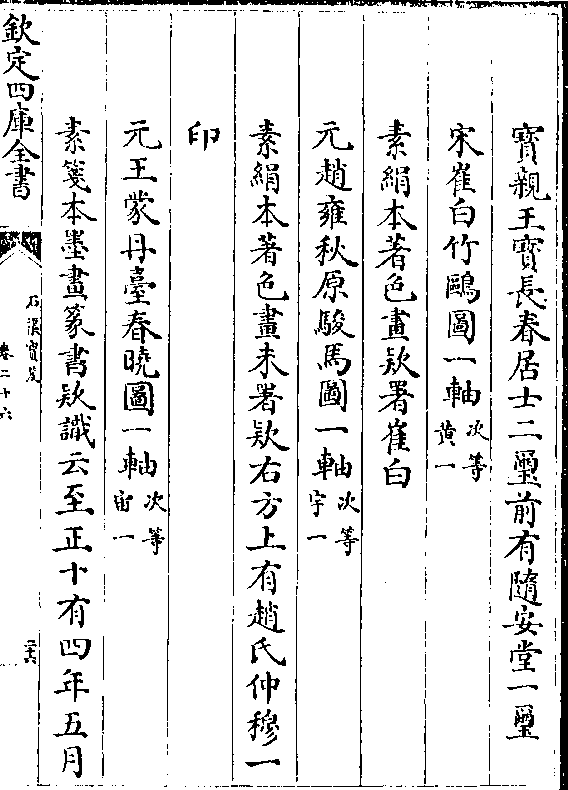 寳親王寳長春居士二璽前有隨安堂一璽
宋崔白竹鷗圖一軸次等黄一
素絹本著色畫欵署崔白
元趙雍秋原駿馬圖一軸次等宇一
素絹本著色畫未署欵右方上有趙氏仲穆一
印
元王蒙丹臺春曉圖一軸次等宙一
素箋本墨畫篆書欵識云至正十有四年五月
欽定四庫全書
石渠寳笈
卷二十六